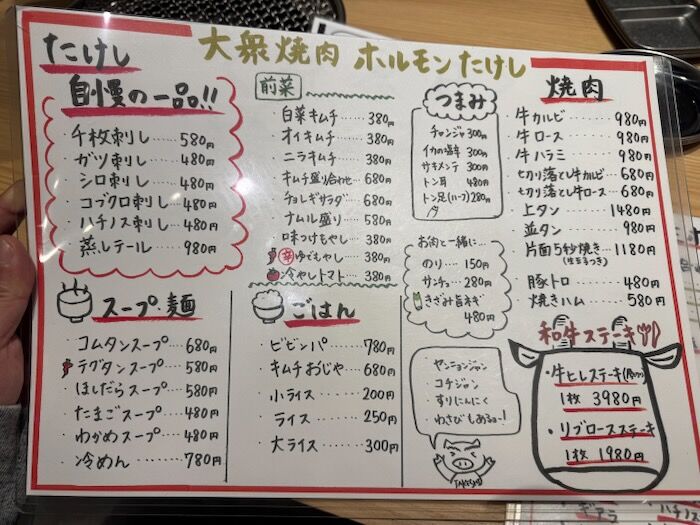 大衆焼肉 ホルモンたけし
たけし
自慢の一品!!
・千枚刺し……580円
・ガツ刺し……480円
・シロ刺し……480円
・コブクロ刺し……480円
・ハチノス刺し……480円
・蒸しテール……980円
前菜
・白菜キムチ……380円
・オイキムチ……380円
・ニラキムチ……380円
・キムチ盛り合わせ……680円
・チョレギサラダ……680円
・ナムル盛り……580円
・味つけもやし……380円
・辛ゆでもやし……380円
・冷やしトマト……380円
つまみ
・チャンジャ 300円
・イカの塩辛 300円
・サキメンテ 300円
・トン耳 480円
・トン足(ハーフ) 280円
お肉と一緒に…
・のり……150円
・サンチュ……280円
・きざみ旨ネギ
480円
焼肉
・牛カルビ……980円
・牛ロース……980円
・牛ハラミ……980円
・切り落とし牛カルビ…680円
・切り落とし牛ロース…680円
・上タン……1480円
・並タン……980円
・片面5秒焼き…1180円
・豚トロ……480円
・焼きハム……580円
スープ・麺
・コムタンスープ……680円
・テグタンスープ……580円
・ほしだらスープ……580円
・たまごスープ……480円
・わかめスープ……480円
・冷めん……780円
ごはん
・ビビンバ……780円
・キムチおじや……680円
・小ライス……200円
・ライス……250円
・大ライス……300円
・ヤンニョンジャン
・コチジャン
・すりにんにく
・わさびもあるよー!
和牛ステーキ
・牛ヒレステーキ
1枚 3980円
・リブロースステーキ
1枚 1980円
ギアラ
ハチノス